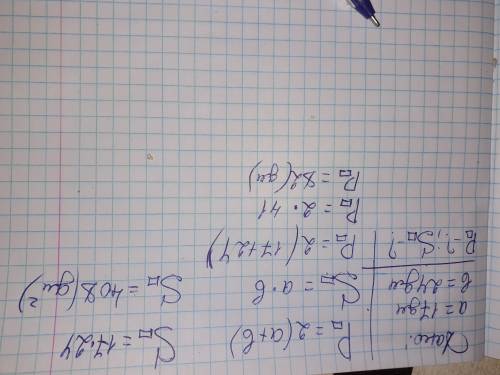 Дано:
a = 17 дм
b = 24 дм
P▭ - ?; S▭ - ?
P▭ = 2(a+b)
S▭ = a·b
P▭ = 2(17+24)
P▭ = 2·41
P▭ = 82(дм)
S▭ = 17·24
S▭ = 408(дм²)